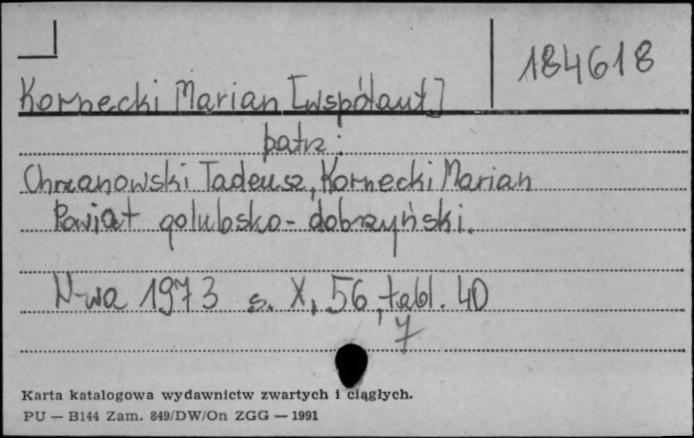 184618
Kornecki Marian [współaut.]
patrz:
Chrzanowski Tadeusz, Kornecki Marian
Powiat golubsko-dobrzyński.
W-wa 1973 s. X, 56, tabl. 40
7
Karta katalogowa wydawnictw zwartych i ciągłych.
PU — B144 Zam. 849/DW/On ZGG — 1991